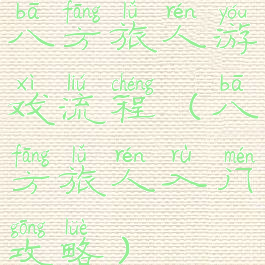 bā fāng lǚ rén yóu
八方旅人游
xì liú chéng bā
戏流程（八
fāng lǚ rén rù mén
方旅人入门
gōng lüè
攻略）